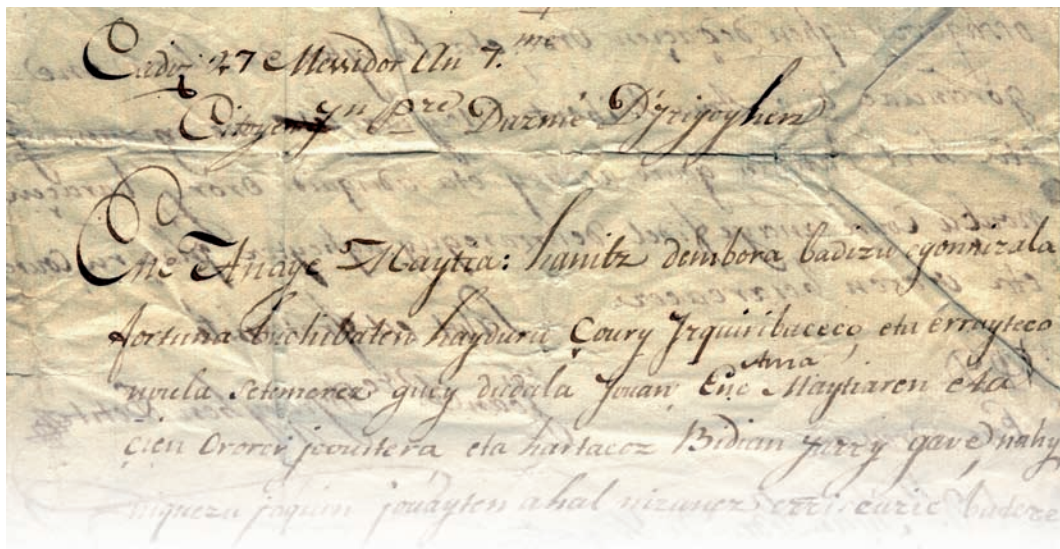 Cadiz 27 Messidor An 7.me
Citoyen Jn Pre Duznié D'yrigoyhen
Ene Anaye Maytia: hanitz dembora badizu egonnizala
fortuna buchibaten hayduru Çoury Izquiribaceco, eta errayteco
nola setemerez guey dudala jouan, Ene Ama Maytiaren eta
çien ororen icoustera eta hartacoz Bidian jarry gave, nahy
niquezu jaquin jouayten ahal nizanez erri eurie badere